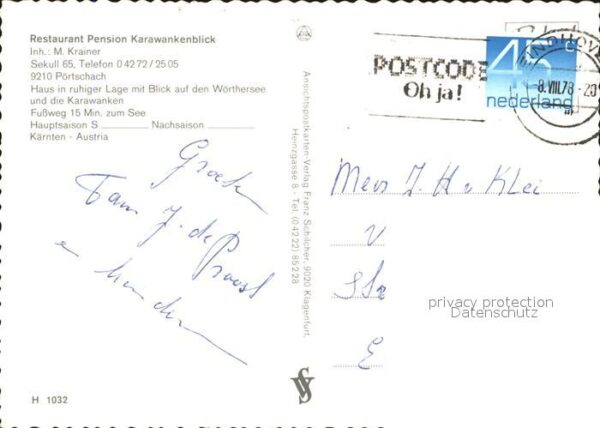 Restaurant Pension Karawankenblick
Inh.: M. Krainer
Sekull 65, Telefon 0 42 72 / 25 05
9210 Pörtschach
Haus in ruhiger Lage mit Blick auf den Wörthersee
und die Karawanken
Fußweg 15 Min. zum See
Hauptsaison S Nachsaison
Kärnten - Austria
Groeten
Fam J. de Proost
en kinderen
H 1032
Ansichtspostkarten-Verlag Franz Schilcher, 9020 Klagenfurt,
Heinzgasse 8 - Tel. (0 42 22) 85 2 28
POSTCODE
Oh ja!
EINDHOVEN
8.VIII.78
45c
nederland
Mevr J. H v Klei
V
E
privacy protection
Datenschutz